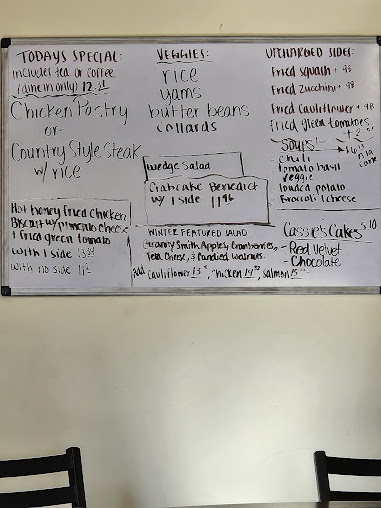 TODAYS SPECIAL:
includes tea or coffee
(dine in only) 12.
Chicken Pastry
or
Country Style Steak
w/ rice
Hot honey fried chicken
Biscuit w/ pimento cheese
+ fried green tomato
with 1 side 13
with no side 11
VEGGIES:
rice
yams
butter beans
collards
Wedge Salad
Crabcake Benedict
w/ 1 side 11
WINTER FEATURED SALAD
Granny Smith Apples, Cranberries,
Feta Cheese, & Candied Walnuts.
Add Cauliflower 13, chicken 14, salmon 15
UPCHARGED SIDES:
fried squash + .98
fried zucchini + .98
fried cauliflower + .98
fried green tomatoes
SOUPS:
chili
tomato basil
veggie
loaded potato
Broccoli cheese
Cassie's Cakes $10
- Red Velvet
- Chocolate